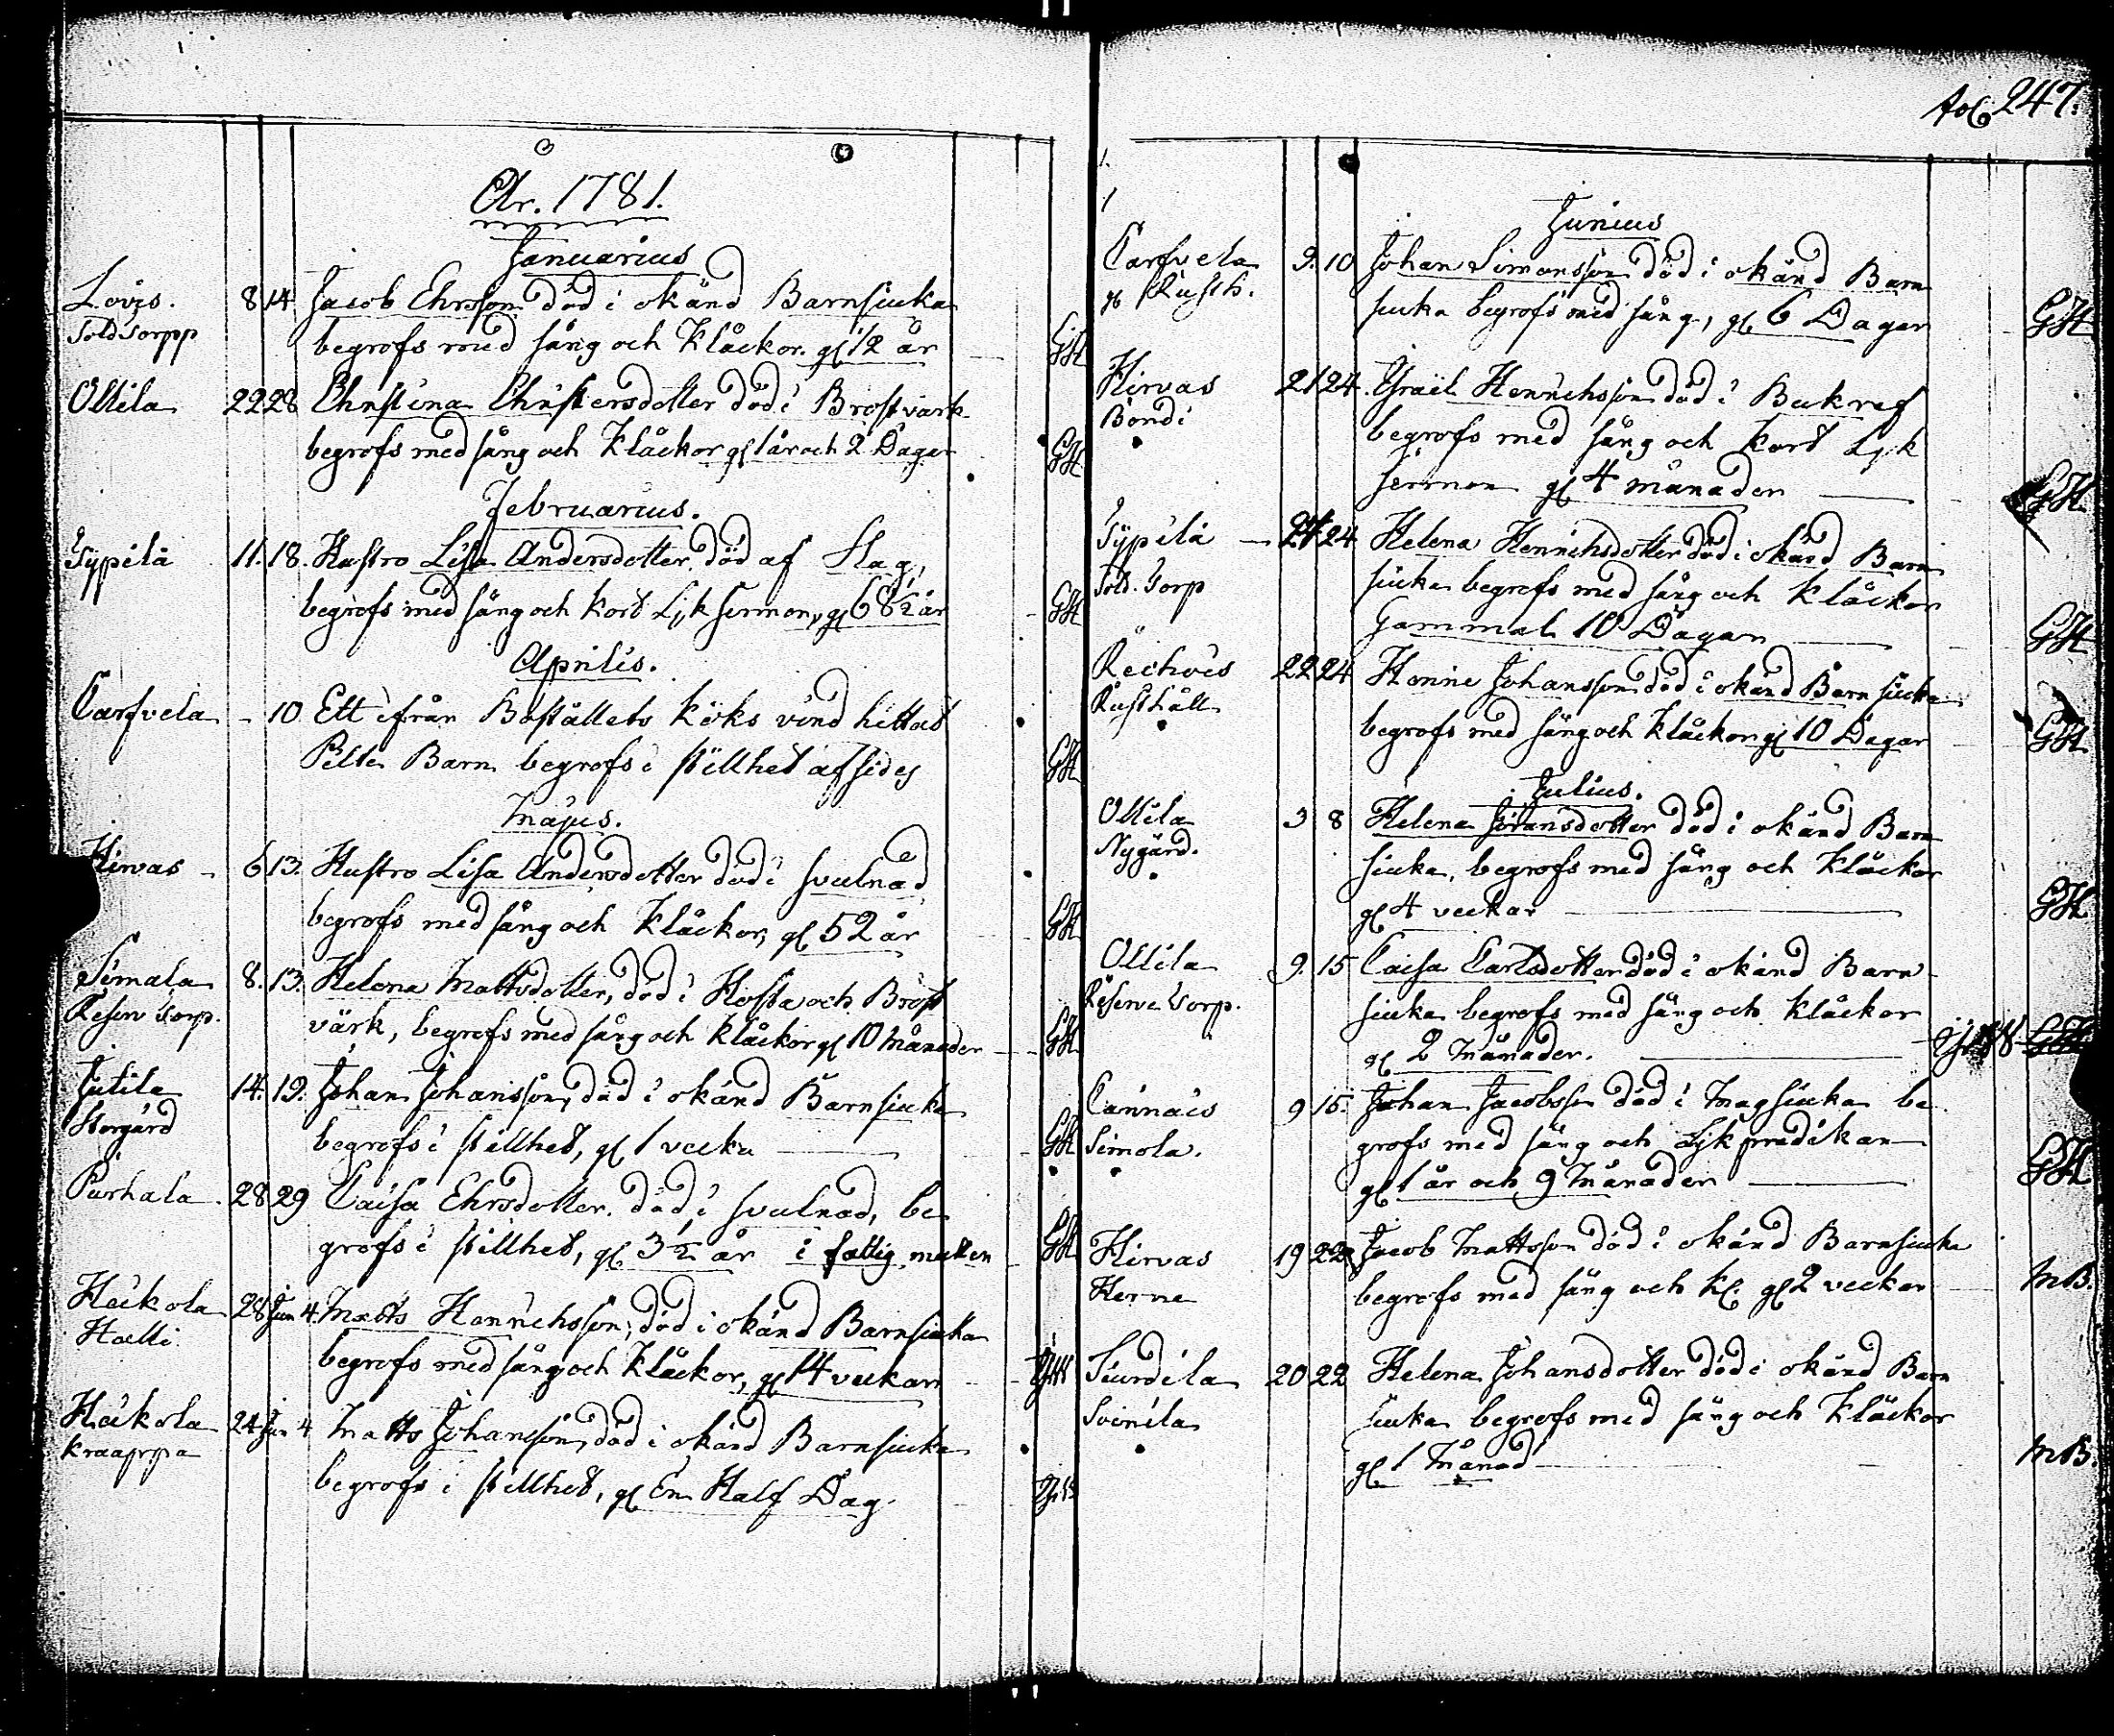 Fol 247.
Ar. 1781.
Januarius
Lovis. 8 14 Jacob Ehrsson död i okänd Barnsiuka
Sold Torpp begrofs med sång och Klåckor. gl 12 år GH
Ollila 22 28 Christina Christersdotter död i Brostvärk
begrofs med sång och Klåckor gl 1 år och 2 Dagar GH
Februarius.
Typilä 11. 18. Hustro Lisa Andersdotter, död af Slag,
begrofs med sång och kort Lijk sermon, gl 68½ år GH
Aprilis.
Carfvela - 10 Ett ifrån Boställets köks vind hittat
Pilte Barn begrofs i stillhet afsides GH
Majus.
Hirvas - 6 13. Hustro Lisa Andersdotter död i svulnad
begrofs med sång och Klåckor, gl 52 år GH
Simala 8. 13. Helena Mattsdotter, död i Hosta och Bröst
Reserv Torp. värk, begrofs med sång och klåckor gl 10 Månader GH
Jutila 14. 19. Johan Johansson, död i okänd Barnsiuka
Storgård begrofs i stillhet, gl 1 vecka GH
Parhala. 28 29 Caisa Ehrsdotter. död i svulnad, be
grofs i stillhet, gl 3½ år i fattig mullen GH
Häikola 28 Jun 4. Matts Henrichsson, död i okänd Barnsiuka
Hälli begrofs med sång och Klåckor, gl 14 veckar
Häikola 24 Jun 4 Matts Johansson, död i okänd Barnsiuka
Kraappa begrofs i stillhet, gl En Half Dag.
Junius
Carfvela 9. 10 Johan Simonsson död i okänd Barn
Rusth. siuka begrofs med sång, gl 6 Dagar GH
Hirvas 21 24. Israël Henrichsson död i Bukref
Bondi begrofs med sång och kort Lijk
sermon gl 4 månader GH
Typilä 24 24 Helena Henrichsdotter död i okänd Barn
Sold. Torp siuka begrofs med sång och klåckor
Gammal 10 Dagar GH
Reihvis 22 24 Hanine Johansson död i okänd Barn siuka
Rusthåll begrofs med sång och klåckor gl 10 Dagar GH
Julius.
Ollila 3 8 Helena Göransdotter död i okänd Barn
Nygård. siuka, begrofs med sång och Klåckor
gl 4 veckor GH
Ollila 9. 15 Caisa Carlsdotter död i okänd Barn
Reserve Torp. siuka begrofs med sång och klåckor
gl 2 Månader.
Cannais 9 15. Johan Jacobsson död i Magsiuka be
Simola. grofs med sång och Lijk predikan
gl 1 år och 9 Månader GH
Hirvas 19 22 Jacob Mattsson död i okänd Barnsiuka
Herne begrofs med sång och kl. gl 2 veckor MB.
Siurdila 20 22 Helena Johansdotter död i okänd Barn
Soinila siuka begrofs med sång och Klåckor
gl 1 Månad MB.